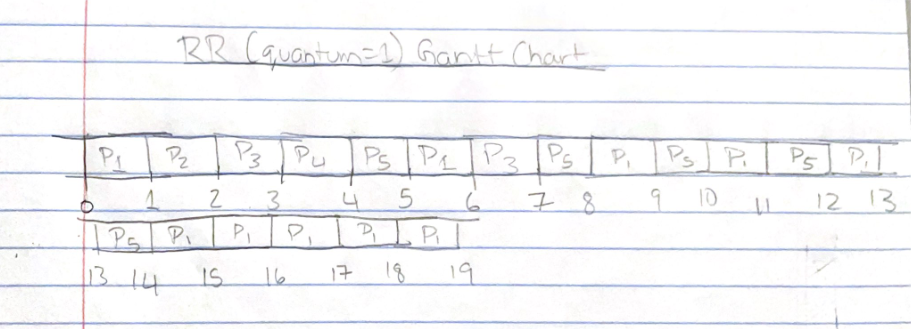 RR (quantum=1) Gantt Chart
P1 P2 P3 P4 P5 P1 P3 P5 P1 P5 P1 P5 P1
0 1 2 3 4 5 6 7 8 9 10 11 12 13
P5 P1 P1 P1 P1 P1
13 14 15 16 17 18 19